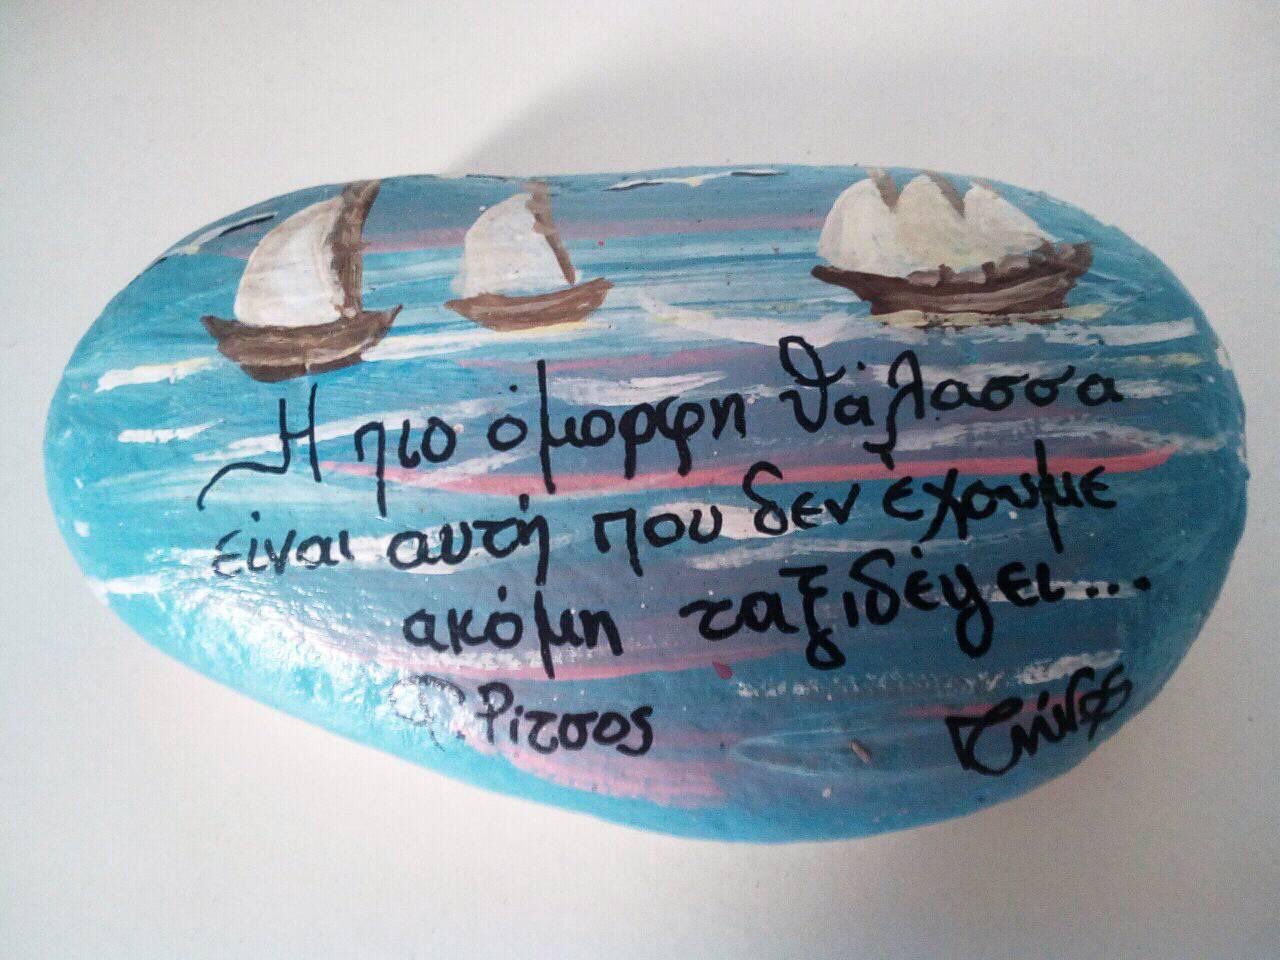 Η πιο όμορφη θάλασσα
είναι αυτή που δεν έχουμε
ακόμη ταξιδέψει...
Ρίτσος